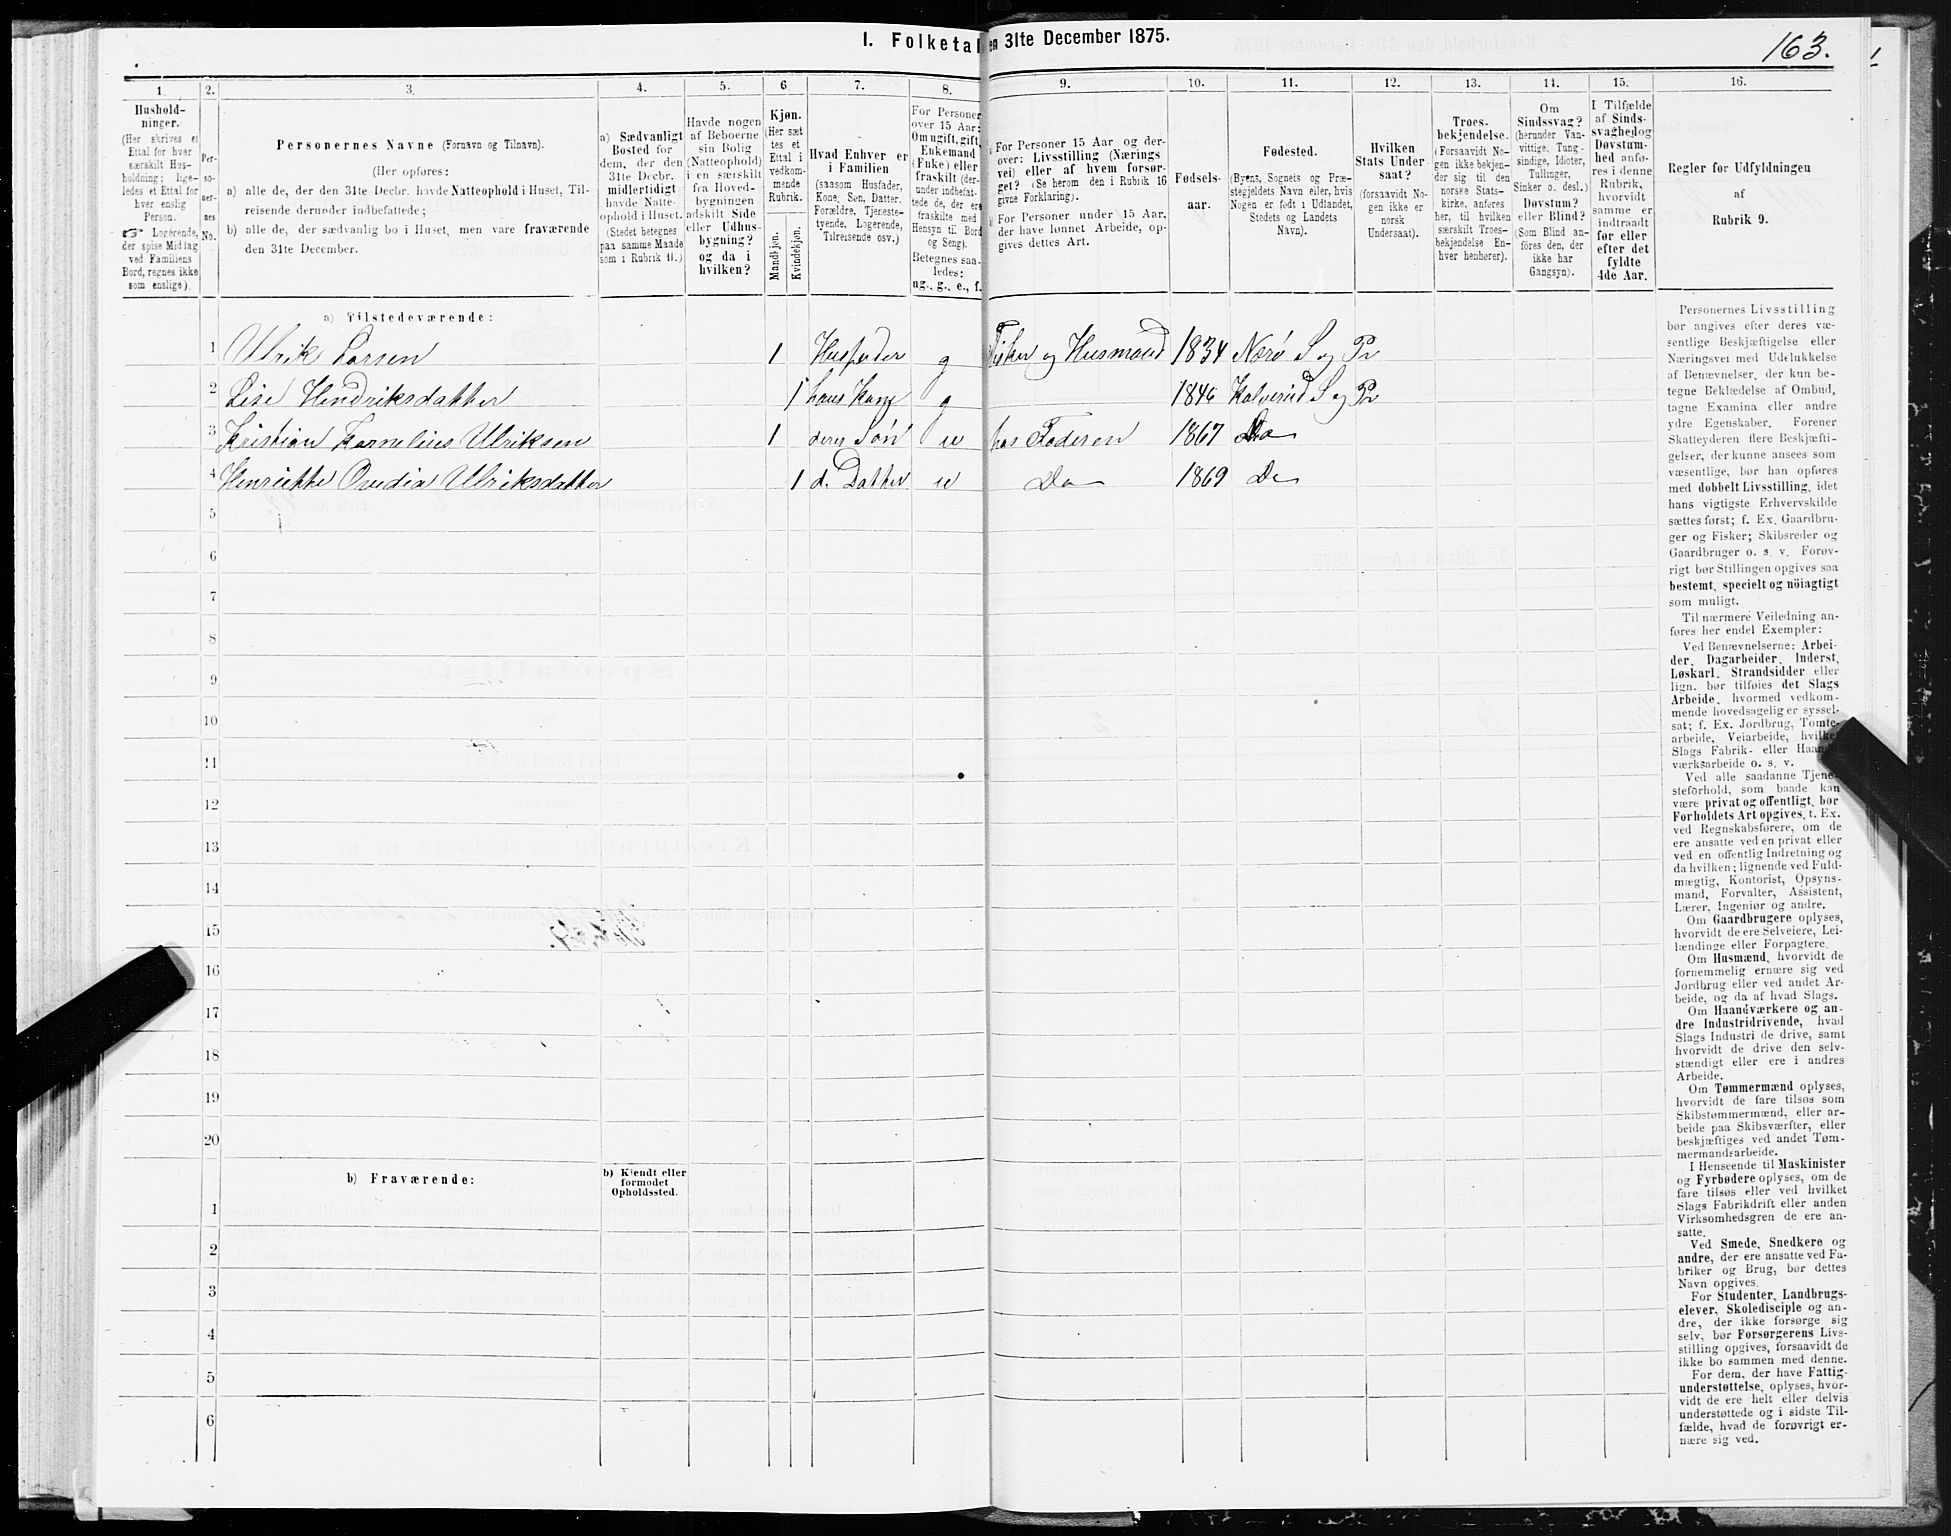 I. Folketal
en 31te December 1875.
163.
1.
2.
3.
4.
5.
6
7.
8.
9.
10.
11.
12.
13.
14.
15.
16.
Hushold-
ninger.
(Her skrives et
Ettal for hver
særskilt Hus-
holdning; lige-
ledes et Ettal for
hver enslig
Person.
☞ Logerende,
der spise Middag
ved Familiens
Bord, regnes ikke
som enslige).
Per-
so-
ner-
nes
No.
Personernes Navne (Fornavn og Tilnavn).
(Her opføres:
a) alle de, der den 31te Decbr. havde Natteophold i Huset, Til-
reisende derunder indbefattede;
b) alle de, der sædvanlig bo i Huset, men vare fraværende
den 31te December.
a) Sædvanligt
Bosted for
dem, der den
31te Decbr.
midlertidigt
havde Natte-
ophold i Huset.
(Stedet betegnes
paa samme Maade
som i Rubrik 11.)
Havde nogen
af Beboerne
sin Bolig
(Natteophold)
i en særskilt
fra Hoved-
bygningen
adskilt Side
eller Udhus-
bygning?
og da i
hvilken?
Kjøn.
(Her sæt
tes et
Ettal i
vedkom-
mende
Rubrik.
Mandkjøn.
Kvindekjøn.
Hvad Enhver er
i Familien
(saasom Husfader,
Kone, Søn, Datter,
Forældre, Tjeneste-
tyende, Logerende,
Tilreisende osv.)
For Personer
over 15 Aar:
Om ugift, gift,
Enkemand
(Enke) eller
fraskilt (der-
under indbefat-
tede de, der ere
fraskilte med
Hensyn til Bord
og Seng).
Betegnes saa-
ledes:
ug., g., e., f.
For Personer 15 Aar og der-
over: Livsstilling (Nærings
vei) eller af hvem forsør-
get? (Se herom den i Rubrik 16
givne Forklaring).
For Personer under 15 Aar,
der have lønnet Arbeide, op-
gives dettes Art.
Fødsels-
aar.
Fødested.
(Byens, Sognets og Præ-
stegjeldets Navn eller, hvis
Nogen er født i Udlandet,
Stedets og Landets
Navn).
Hvilken
Stats Under
saat?
(forsaavidt No-
gen ikke er
norsk
Undersaat).
Troes-
bekjendelse.
(Forsaavidt No-
gen ikke bekjen-
der sig til den
norske Stats-
kirke, anføres
her, til hvilken
særskilt Troes-
bekjendelse En-
hver henhører).
Om
Sindssvag?
(herunder Van-
vittige, Tung-
sindige, Idioter,
Tullinger,
Sinker o. desl.)
Døvstum?
eller Blind?
(Som Blind an-
føres den, der
ikke har
Gangsyn).
I Tilfælde
af Sinds-
svaghed og
Døvstum-
hed anfø-
res i denne
Rubrik,
hvorvidt
samme er
indtraadt
før eller
efter det
fyldte
4de Aar.
Regler for Udfyldningen
af
Rubrik 9.
a) Tilstedeværende:
1 Ulrik Larsen 1 Husfader g Fisker og Husmand 1834 Nærö S og Pr
2 Lise Hendriksdatter 1 hans Kone g 1846 Kolvereid S og Pr
3 Kristian Kornelius Ulriksen 1 deres Sön u hos Foderen 1867 Do
4 Henriette Ovedia Ulriksdatter 1 d. Datter u Do 1869 Do
5
6
7
8
9
10
11
12
13
14
15
16
17
18
19
20
b) Fraværende:
b) Kjendt eller
formodet
Opholdssted.
1
2
3
4
5
6
Personernes Livsstilling
bør angives efter deres væ-
sentlige Beskjæftigelse eller
Næringsvei med Udelukkelse
af Benævnelser, der kun be-
tegne Beklædelse af Ombud,
tagne Examina eller andre
ydre Egenskaber. Forener
Skatteyderen flere Beskjæfti-
gelser, der kunne ansees som
væsentlige, bør han opføres
med dobbelt Livsstilling, idet
hans vigtigste Erhvervskilde
sættes først; f. Ex. Gaardbru-
ger og Fisker; Skibsreder og
Gaardbruger o. s. v. Forøv-
rigt bør Stillingen opgives saa
bestemt, specielt og nöiagtigt
som muligt.
Til nærmere Veiledning an-
føres her endel Exempler:
Ved Benævnelserne: Arbei-
der, Dagarbeider, Inderst,
Løskarl, Strandsidder eller
lign. bør tilføies det Slags
Arbeide, hvormed vedkom-
mende hovedsagelig er syssel-
sat; f. Ex. Jordbrug, Tomte-
arbeide, Veiarbeide, hvilket
Slags Fabrik- eller Haand-
værksarbeide o. s. v.
Ved alle saadanne Tjene-
steforhold, som baade kan
være privat og offentligt, bør
Forholdets Art opgives, t. Ex.
ved Regnskabsførere, om de
ere ansatte ved en privat eller
ved en offentlig Indretning og
da hvilken; lignende ved Fuld-
mægtig, Kontorist, Opsyns-
mand, Forvalter, Assistent,
Lærer, Ingeniør og andre.
Om Gaardbrugere oplyses,
hvorvidt de ere Selveiere, Lei-
lændinge eller Forpagtere.
Om Husmænd, hvorvidt de
fornemmelig ernære sig ved
Jordbrug eller ved andet Ar-
beide, og da af hvad Slags.
Om Haandværkere og an-
dre Industridrivende, hvad
Slags Industri de drive, samt
hvorvidt de drive den selv-
stændigt eller ere i andres
Arbeide.
Om Tømmermænd oplyses,
hvorvidt de fare tilsøs som
Skibstømmermænd, eller ar-
beide paa Skibsværfter, eller
beskjæftiges ved andet Tøm-
mermandsarbeide.
I Henseende til Maskinister
og Fyrbødere oplyses, om de
fare tilsøs eller ved hvilket
Slags Fabrikdrift eller anden
Virksomhedsgren de ere an-
satte.
Ved Smede, Snedkere og
andre, der ere ansatte ved Fa-
briker og Brug, bør dettes
Navn opgives.
For Studenter, Landbrugs-
elever, Skoledisciple og an-
dre, der ikke forsørge sig
selv, bør Forsørgerens Livs-
stilling opgives, forsaavidt de
ikke bo sammen med denne.
For dem, der have Fattig-
understøttelse, oplyses, hvor-
vidt de ere helt eller delvis
understøttede og i sidste Til-
fælde, hvad de forøvrigt er-
nære sig ved.